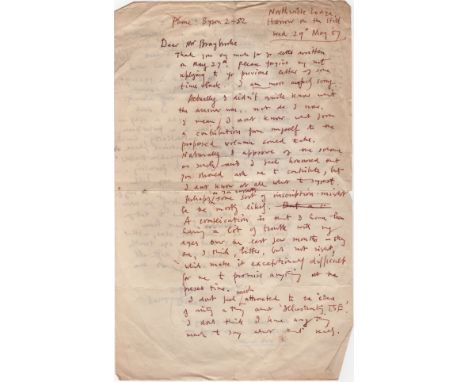 Northwick Lodge,
Phone: Byron 2-52
Harrow on the Hill
Wed 29th May 57
Dear Mr Braybrooke
Thank you very much for yr letter written
on May 27th. Please forgive my not
replying to yr previous letter of some
time back. I am most awfully sorry.
Actually I didn't quite know what
the answer was, nor do I now.
I mean, I don't know what form
a contribution from myself to the
proposed volume could take.
Naturally I approve of the scheme
and feel honoured that
you should ask me to contribute, but
I don't know at all what to suggest
Perhaps some sort of inscription might
be the most likely.
A complication is that I have been
having a lot of trouble with my
eyes over the last few months – they
are, I think, better, but not right,
which makes it exceptionally difficult
for me to promise anything at the
present time.
I don't feel much attracted to the idea
of
I don't think I have anything
much to say about that really.